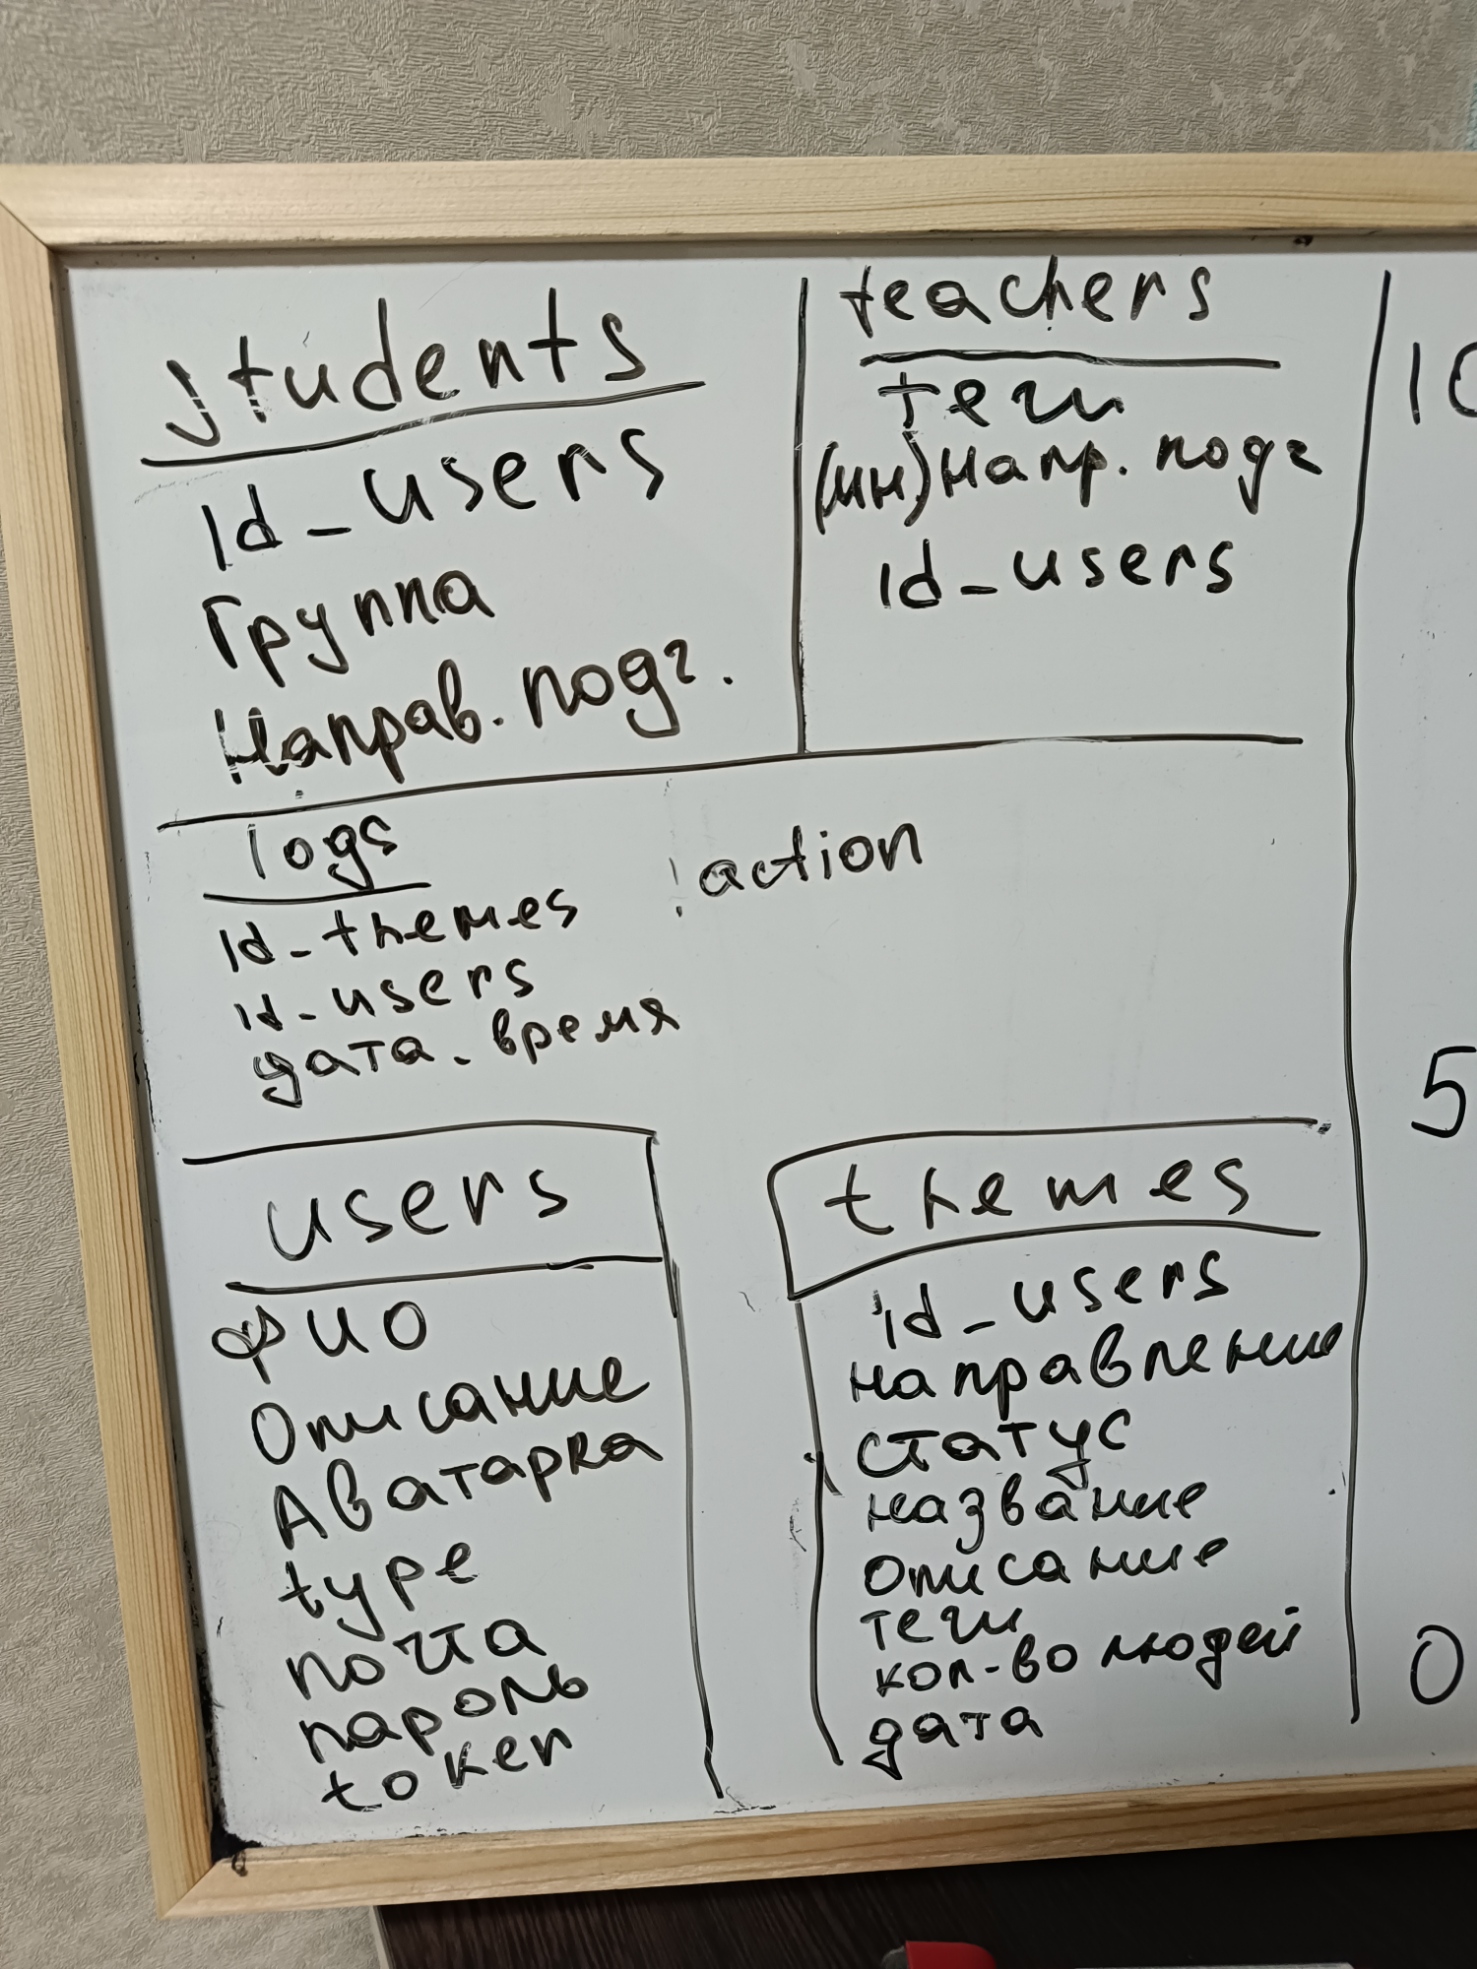 students
id_users
Группа
Направ. подг.
teachers
теги
(мн) напр. подг
id_users
logs
id_themes
id_users
дата. время
action
users
ФИО
Описание
Аватарка
type
почта
пароль
token
themes
id_users
направление
статус
название
описание
теги
кол-во людей
дата
10
5
0